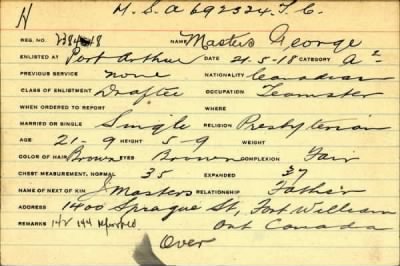 H M.S.A 692324.T.C.
REG. NO. NAME Masters George
ENLISTED AT Port Arthur DATE 21-5-18 CATEGORY A2-
PREVIOUS SERVICE none NATIONALITY Canadian
CLASS OF ENLISTMENT Draftee OCCUPATION Teamster
WHEN ORDERED TO REPORT WHERE
MARRIED OR SINGLE Single RELIGION Presbyterian
AGE 21-9 HEIGHT 5-9
COLOR OF HAIR Brown EYES Brown COMPLEXION Fair
CHEST MEASUREMENT, NORMAL 35 EXPANDED 37
NAME OF NEXT OF KIN J Masters RELATIONSHIP Father
ADDRESS 1400 Sprague St, Fort William
REMARKS Ont Canada
Over